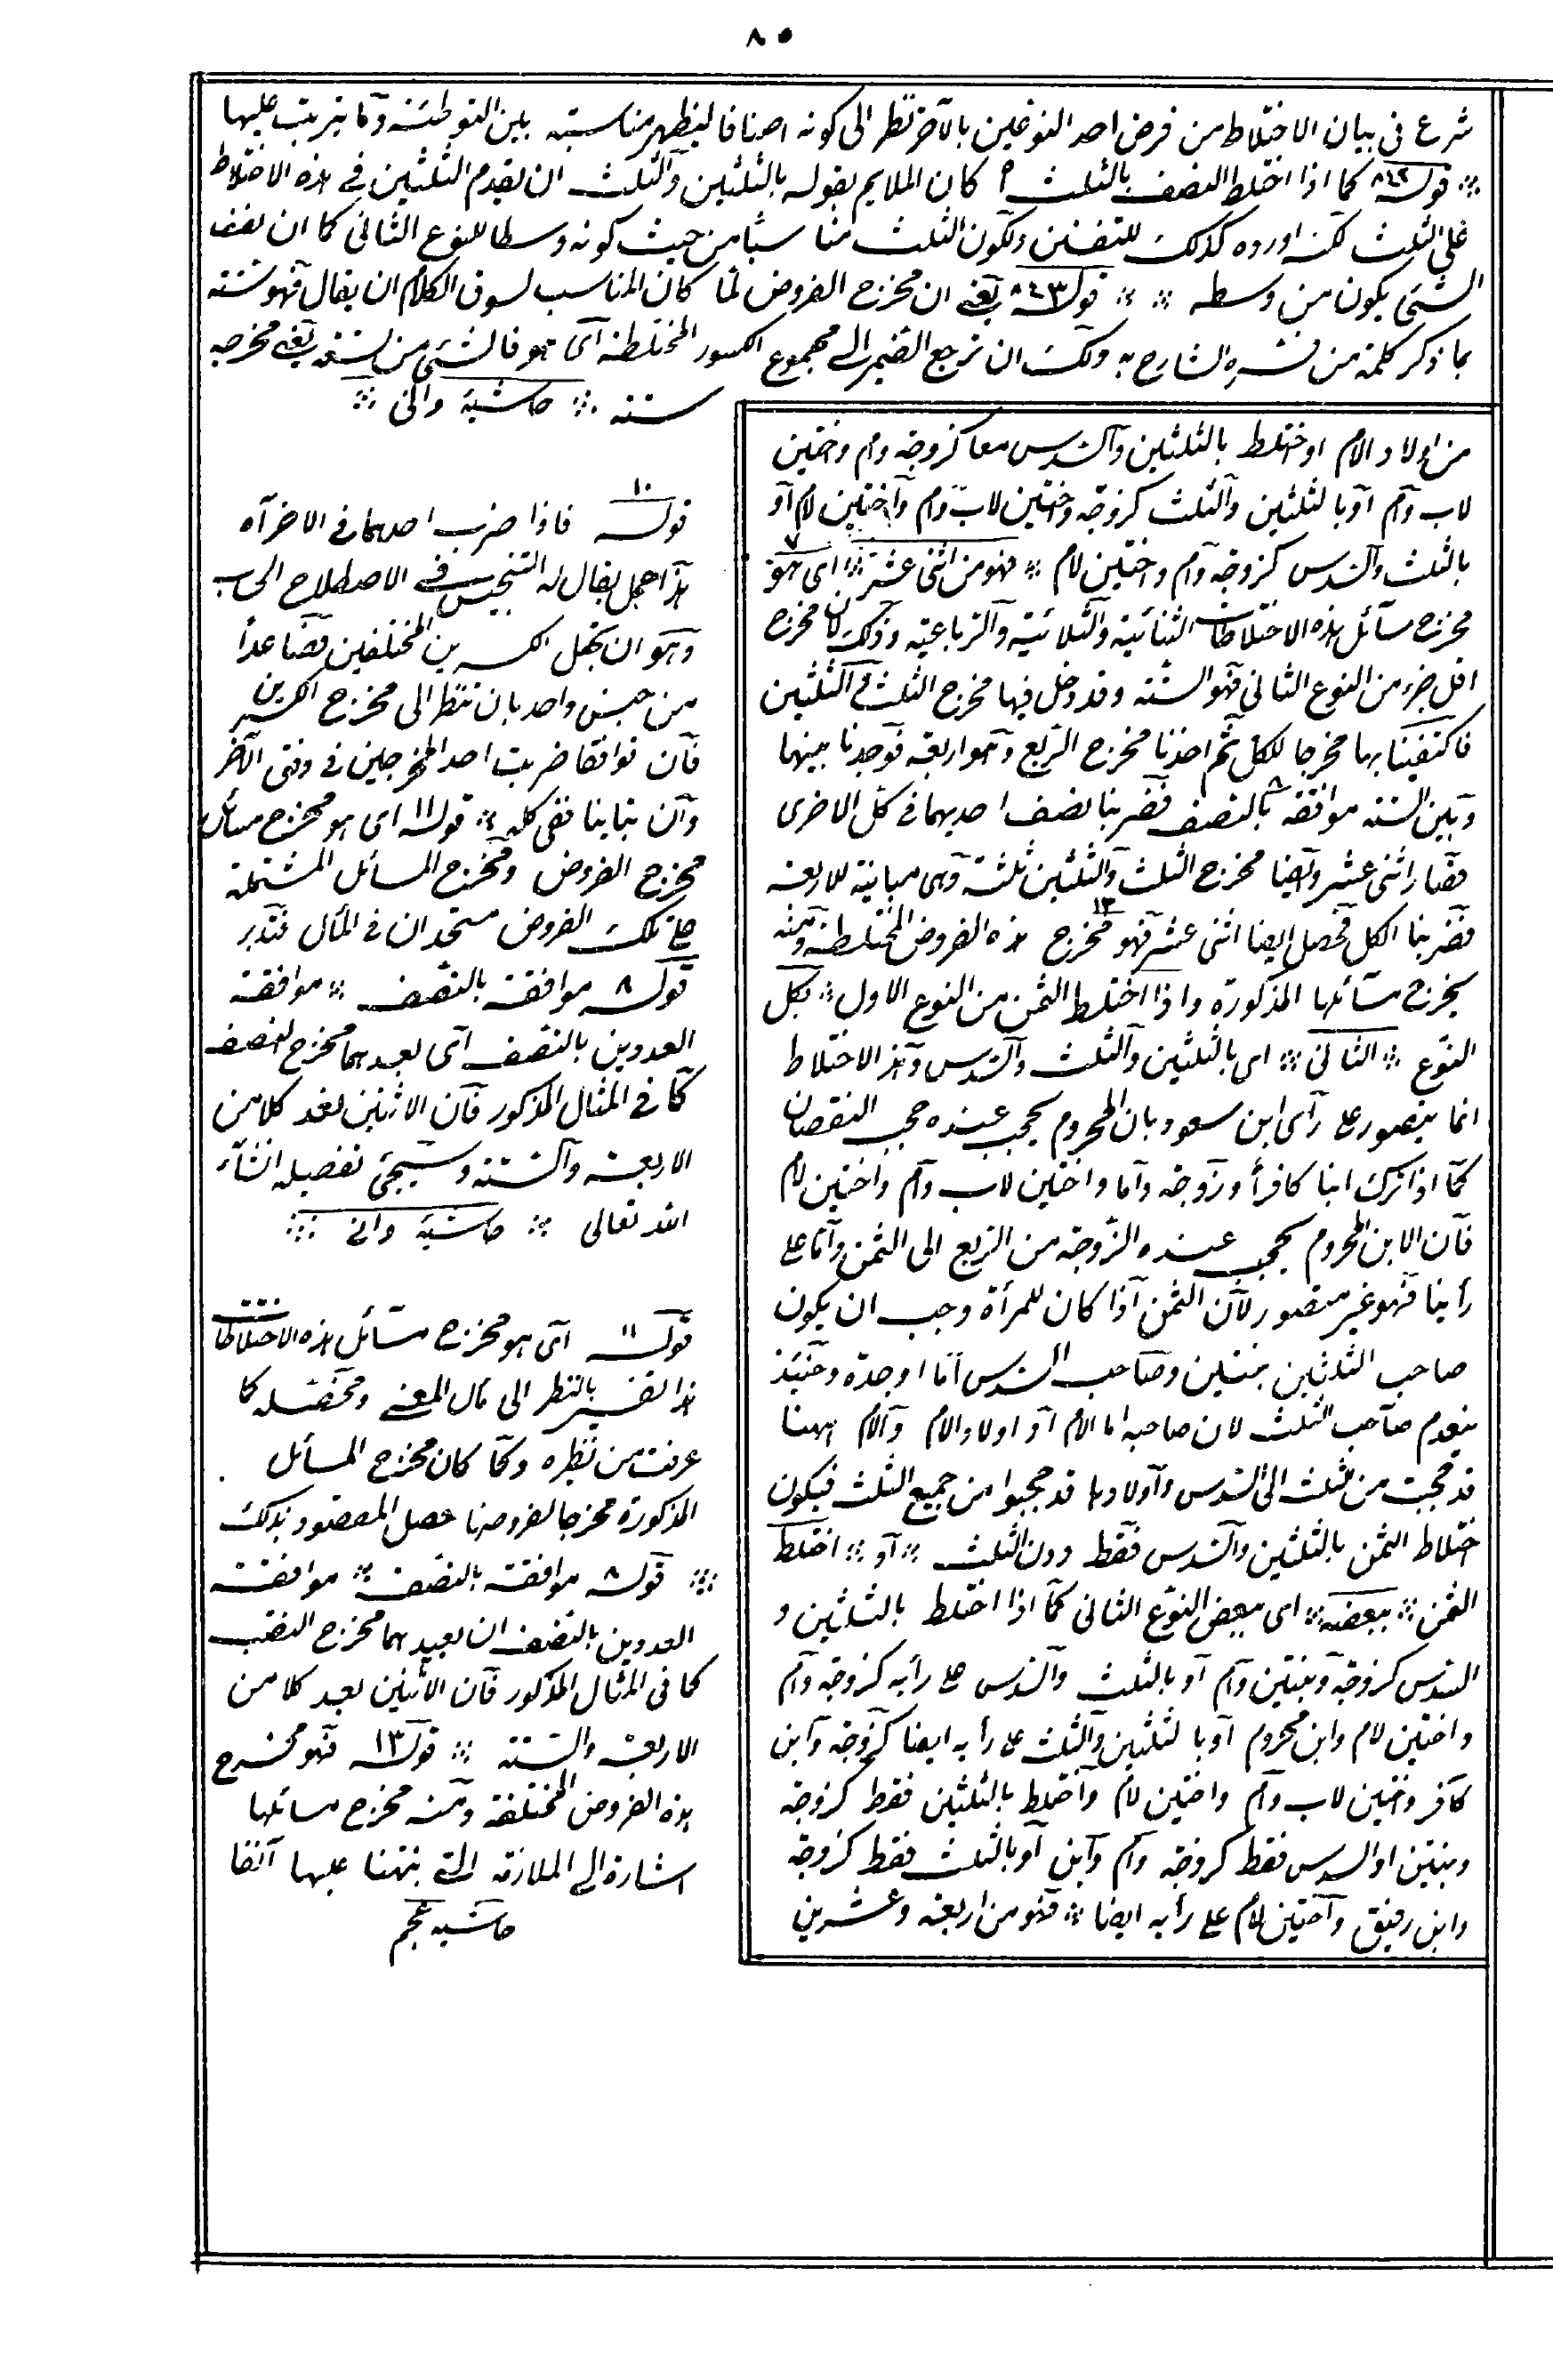 ٨٥
شرع فى بيان الاختلاط من فرض احد النوعين بالآخر نظر الى كونه اصنافا ليظهر مناسبته بين التوطئة وما يترتب عليها
قوله ٨٤٢ كما اذا اختلط النصف بالثلث ٥ كان الملايم بقوله بالثلثين والثلث ان يقدم الثلثين فى هذه الاختلاط
على الثلث لكنه اورده كذلك للتفنن ولكون الثلث مناسبا من حيث كونه وسطا للنوع الثانى كما ان نصف
الشئ يكون من وسطه قوله ٨٤٣ يعنى ان مخرج الفروض لما كان المناسب لسوق الكلام ان يقال فهو ستة
بما ذكر كلمة من فسره الشارح به ولك ان ترجع الضمير الى مجموع الكسور المختلطة اى هو فالشئ من ستة يعنى مخرجه
ستة حاشية وانى
من اولاد الام او اختلط بالثلثين والسدس معا كزوجة وام واختين
لاب وام او بالثلثين والثلث كزوجة واختين لاب وام واختين لام او
بالثلث والسدس كزوجة وام واختين لام فهو من اثنى عشر اى هو ٧
مخرج مسائل هذه الاختلاطات الثنائية والثلاثية والرباعية وذلك لان مخرج
اقل جزء من النوع الثانى فهو الستة وقد دخل فيها مخرج الثلث والثلثين
فاكتفينا بها مخرجا للكل ثم اخذنا مخرج الربع وهو اربعة فوجدنا بينهما
وبين الستة موافقة ٨ بالنصف فضربنا نصف احديهما فى كل الاخرى
فصار اثنى عشر وايضا مخرج الثلث والثلثين ثلثة وهى مباينة للاربعة
فضربنا الكل فحصل ايضا اثنى عشر فهو ١٣ مخرج هذه الفروض المختلطة ومنه
يخرج مسائلها المذكورة واذا اختلط الثمن من النوع الاول بكل
النوع الثانى اى بالثلثين والثلث والسدس وهذا الاختلاط
انما يتصور على رأى ابن مسعود بان المحروم يحجب عنده حجب النقصان
كما اذا ترك ابنا كافرا وزوجة واما واختين لاب وام واختين لام
فان الابن المحروم يحجب عنده الزوجة من الربع الى الثمن واما على
رأينا فهو غير متصور لان الثمن اذا كان للمرأة وجب ان يكون
صاحب الثلثين بنتين وصاحب السدس اما او جدة وحينئذ
ينعدم صاحب الثلث لان صاحبه اما الام او اولاد الام والام ههنا
قد حجبت من الثلث الى السدس واولادها قد حجبوا من جميع الثلث فيكون
ختلاط الثمن بالثلثين والسدس فقط دون الثلث او اختلط
الثمن ببعضه اى ببعض النوع الثانى كما اذا اختلط بالثلثين و
السدس كزوجة وبنتين وام او بالثلث والسدس على رأيه كزوجة وام
واختين لام وابن محروم او بالثلثين والثلث على رأيه ايضا كزوجة وابن
كافر واختين لاب وام واختين لام واختلط بالثلثين فقط كزوجة
وبنتين او السدس فقط كزوجة وام وابن او بالثلث فقط كزوجة
وابن رقيق واختين لام على رأيه ايضا فهو من اربعة وعشرين
قوله ١٠ فاذا ضرب احدهما فى الاخر آه
هذا عمل يقال له التجنيس فى الاصطلاح الحساب
وهو ان يجعل الكسرين المختلفين فصاعدا
من جنس واحد بان تنظر الى مخرج الكسرين
فان توافقا ضربت احد المخرجين فى وفق الآخر
وان تباينا ففى كله قوله ١١ اى هو مخرج مسائل
مخرج الفروض ومخرج المسائل المشتملة
على تلك الفروض متحدان فى المآل فتدبر
قوله ٨ موافقة بالنصف موافقة
العددين بالنصف اى يعدهما مخرج النصف
كما فى المثال المذكور فان الاثنين يعد كلا من
الاربعة والستة وسيجئ تفصيله انشاء
الله تعالى حاشية وانى
قوله ١١ اى هو مخرج مسائل هذه الاختلاطات
هذا تفسير بالنظر الى مآل المعنى ومحصله كما
عرفت من نظيره وكما كان مخرج المسائل
المذكورة مخرجا لفروضها حصل المقصود بذلك
قوله ٨ موافقة بالنصف موافقة
العددين بالنصف ان يعدهما مخرج النصف
كما فى المثال المذكور فان الاثنين يعد كلا من
الاربعة والستة قوله ١٣ فهو مخرج
هذه الفروض المختلفة ومنه مخرج مسائلها
اشارة الى الملازمة التى نبهنا عليها آنفا
حاشيه عجم